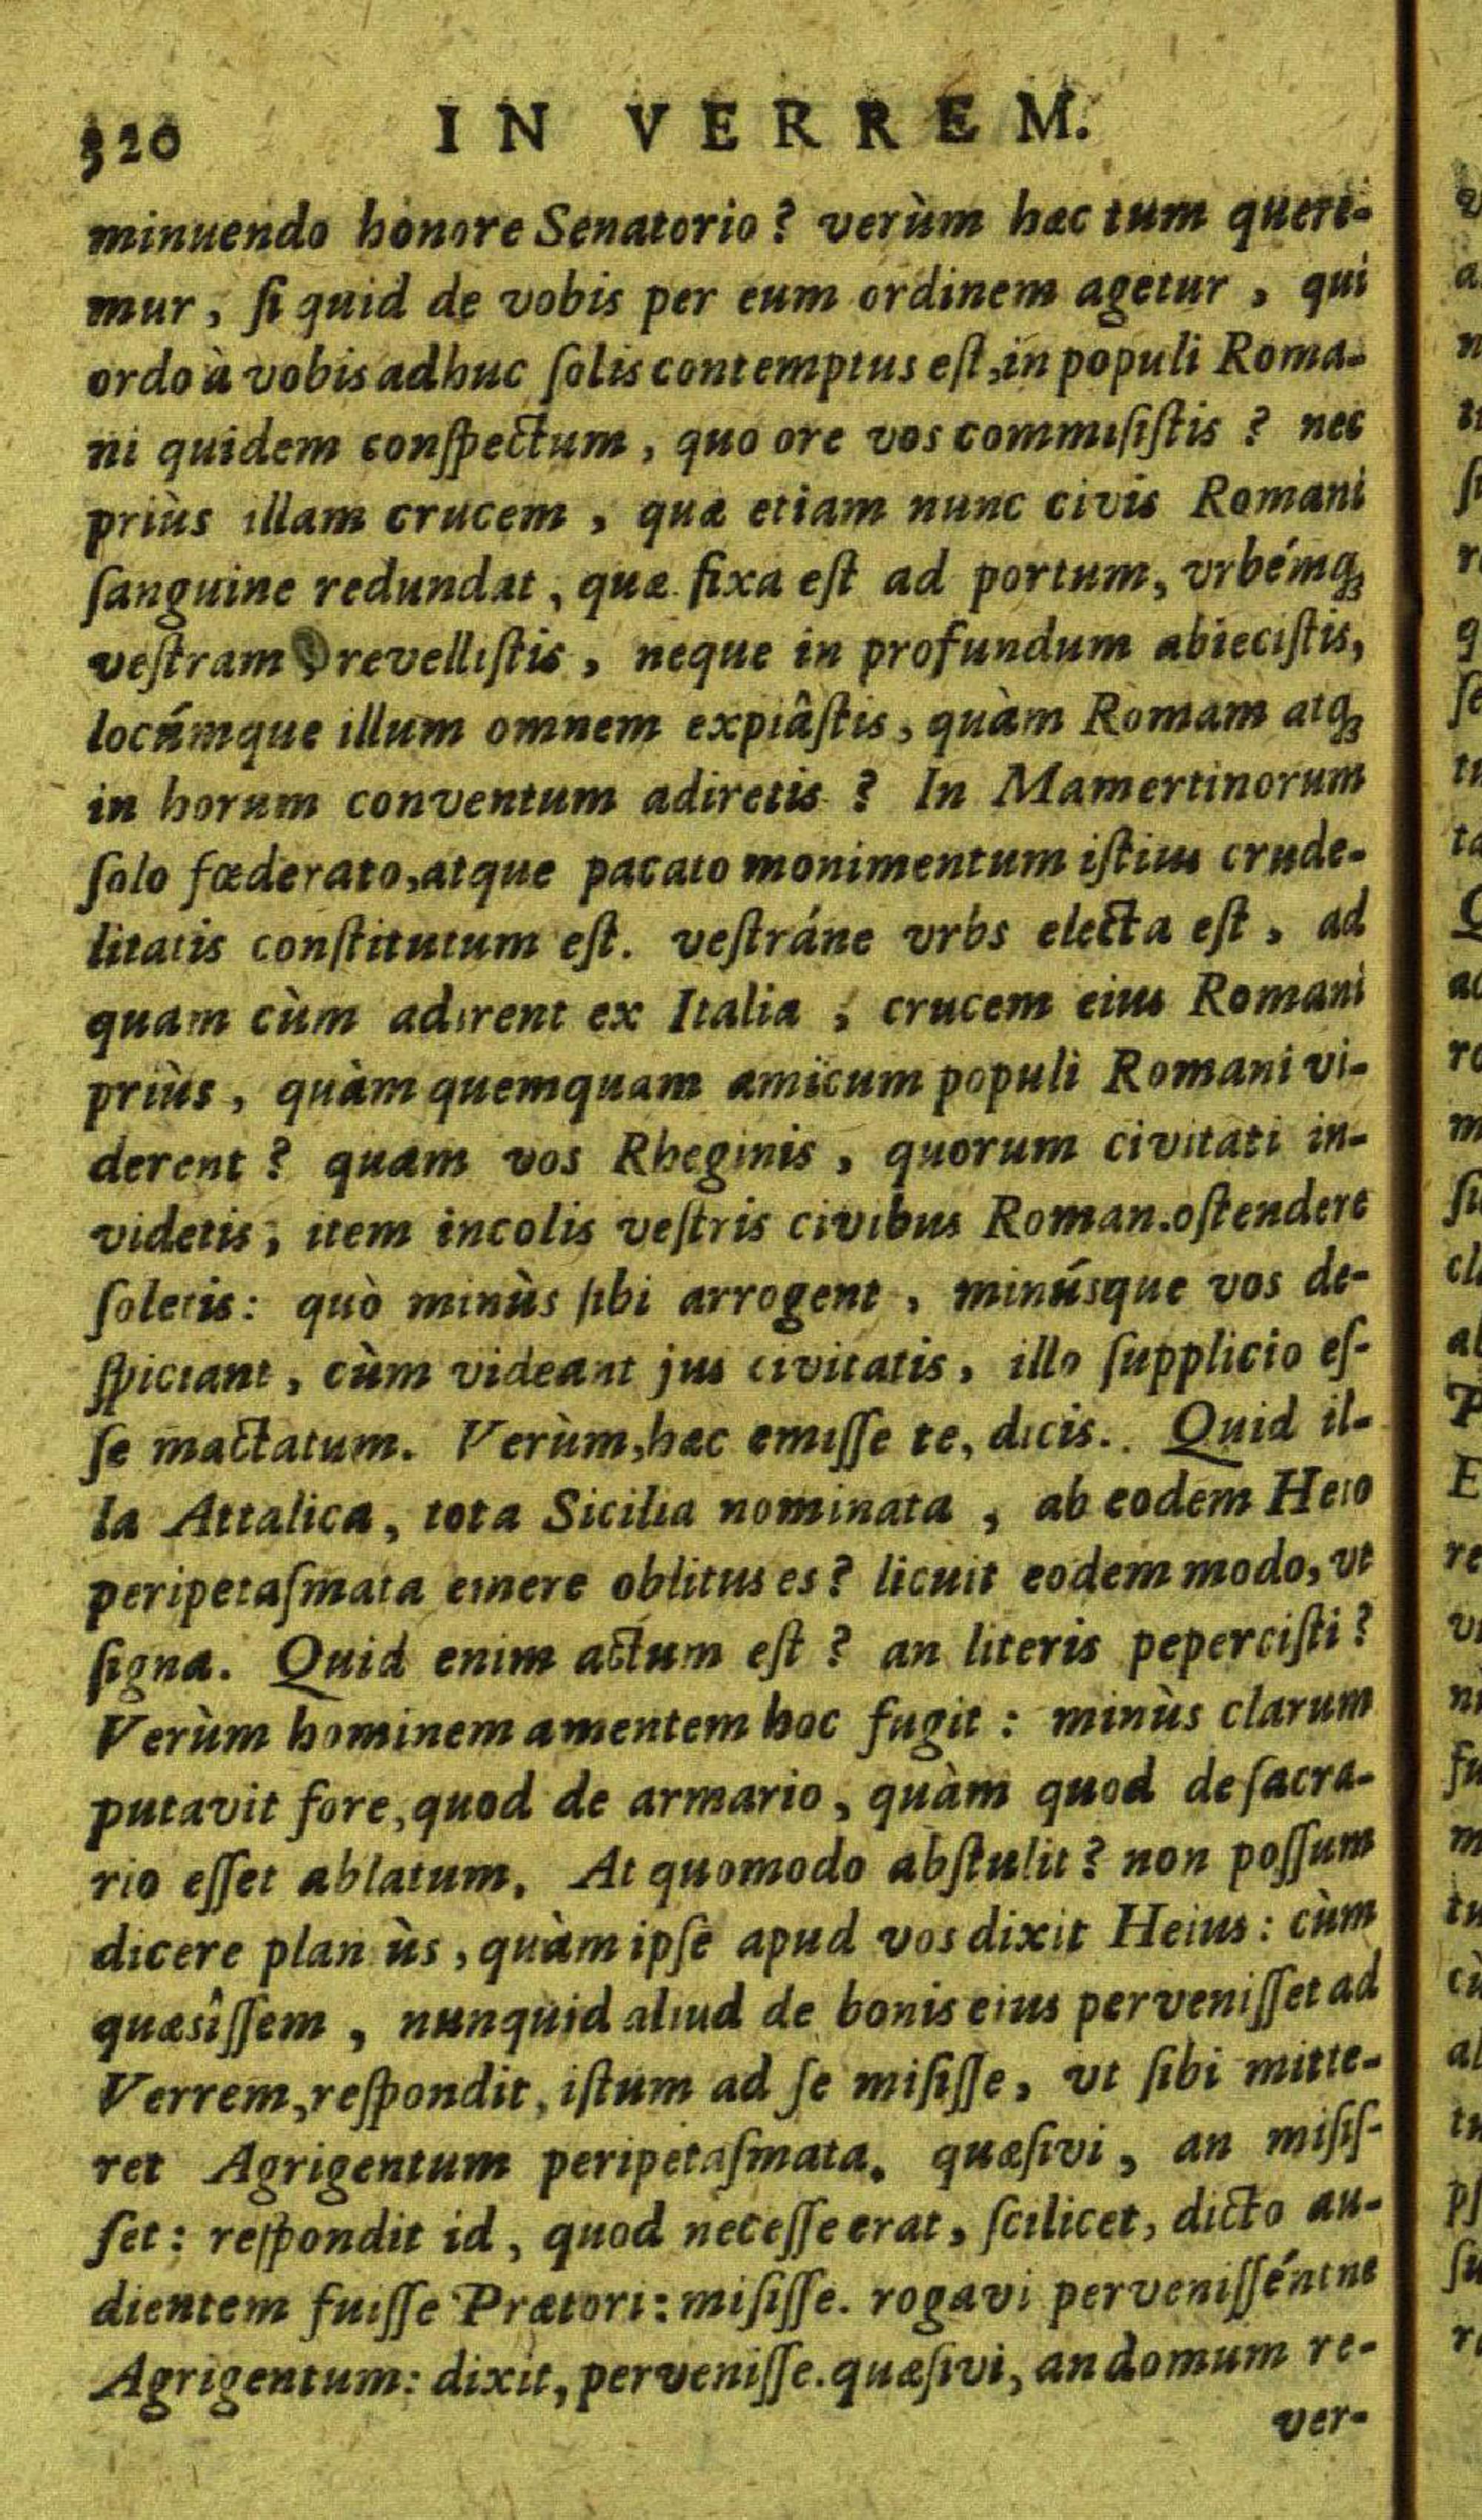 320 IN VERREM.
minuendo honore Senatorio ? verùm hæc tum queri-
mur, ſi quid de vobis per eum ordinem agetur, qui
ordo à vobis adhuc ſolis contemptus eſt, in populi Roma-
ni quidem conſpectum, quo ore vos commiſiſtis ? nec
priùs illam crucem, quæ etiam nunc civis Romani
ſanguine redundat, quæ fixa eſt ad portum, vrbémq₃
veſtram, revelliſtis, neque in profundum abieciſtis,
locúmque illum omnem expiâſtis, quàm Romam atq₃
in horum conventum adiretis ? In Mamertinorum
ſolo fœderato, atque pacato monimentum iſtius crude-
litatis conſtitutum eſt. veſtráne vrbs electa eſt, ad
quam cùm adirent ex Italia, crucem eius Romani
priùs, quàm quemquam amicum populi Romani vi-
derent ? quam vos Rheginis, quorum civitati in-
videtis; item incolis veſtris civibus Roman. oſtendere
ſoletis: quò minùs ſibi arrogent, minúsque vos de-
ſpiciant, cùm videant jus civitatis, illo ſupplicio eſ-
ſe mactatum. Verùm, hæc emiſſe te, dicis.. Quid il-
la Attalica, tota Sicilia nominata, ab eodem Heio
peripetaſmata emere oblitus es? licuit eodem modo, vt
ſigna. Quid enim actum eſt ? an literis peperciſti ?
Verùm hominem amentem hoc fugit : minùs clarum
putavit fore, quod de armario, quàm quod de ſacra-
rio eſſet ablatum. At quomodo abſtulit ? non poſſum
dicere plan ùs, quàm ipſe apud vos dixit Heius: cùm
quæsîſſem, nunquid aliud de bonis eius perveniſſet ad
Verrem, reſpondit, iſtum ad ſe miſiſſe, vt ſibi mitte-
ret Agrigentum peripetaſmata. quæſivi, an miſiſ-
ſet: reſpondit id, quod neceſſe erat, ſcilicet, dicto au-
dientem fuiſſe Prætori: miſiſſe. rogavi perveniſſéntne
Agrigentum: dixit, perveniſſe. quæſivi, an domum re-
ver-